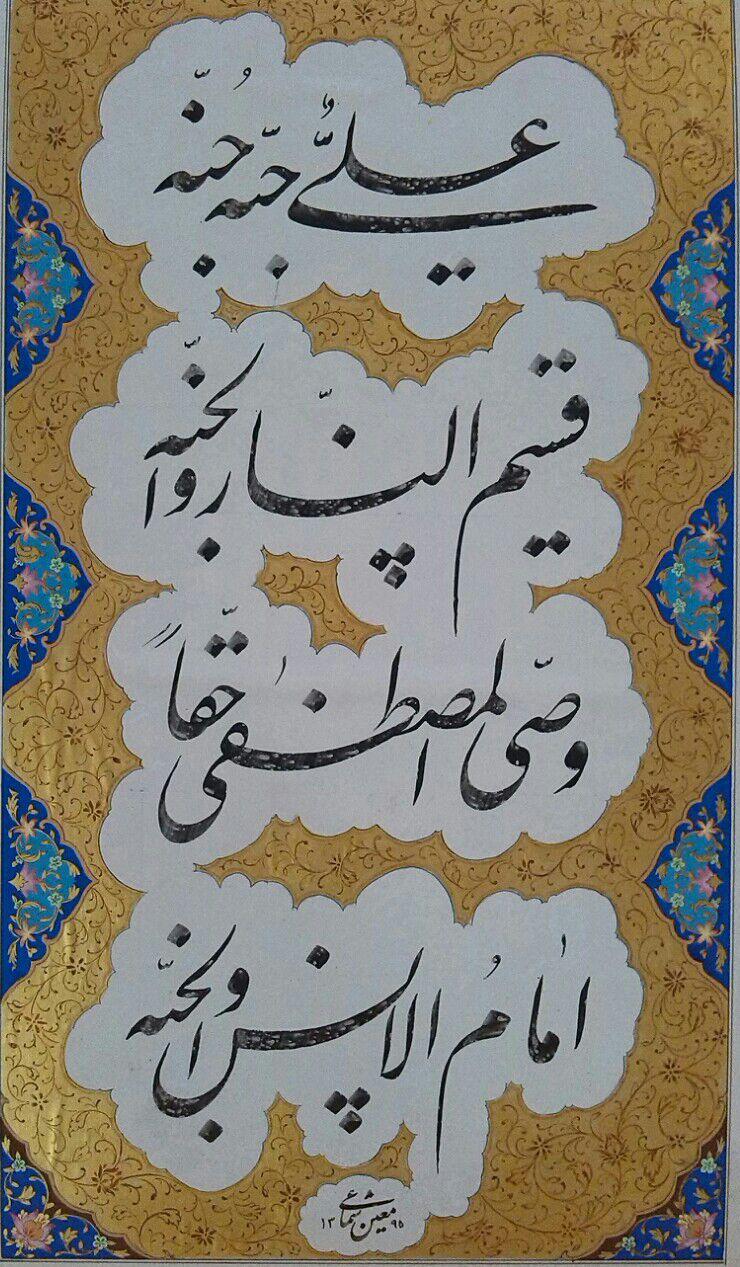 علیٌّ حبّه جُنّه
قسیم النّار والجنّه
وصّی المصطفی حقّاً
امامُ الانس والجنّه
معین شعاعی ۱۳۹۵